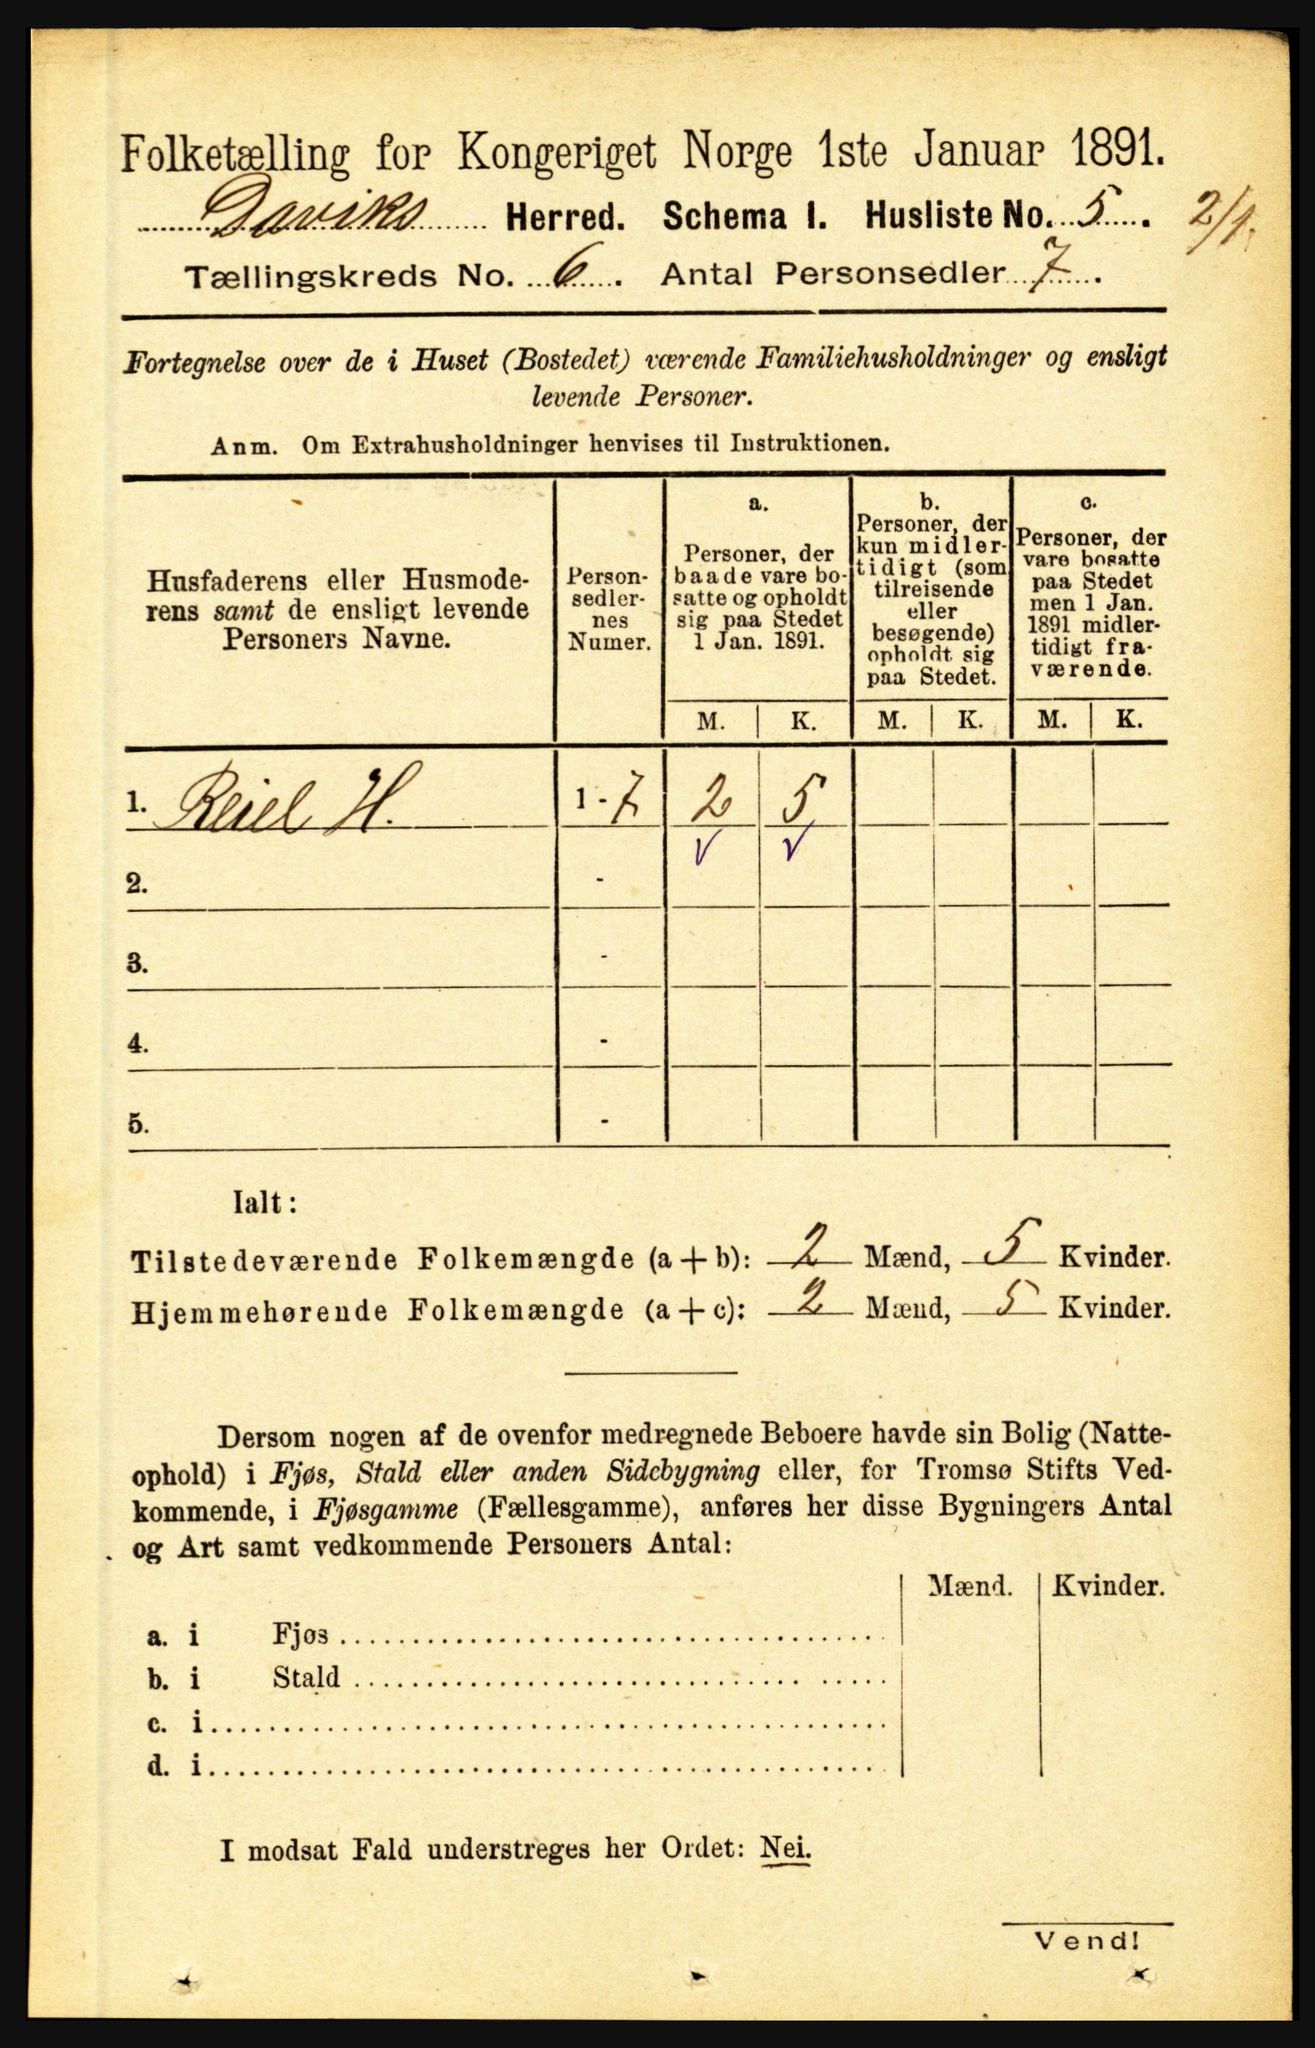 Folketælling for Kongeriget Norge 1ste Januar 1891.
Daviks Herred. Schema I. Husliste No. 5. 2/1.
Tællingskreds No. 6. Antal Personsedler 7.
Fortegnelse over de i Huset (Bostedet) værende Familiehusholdninger og ensligt
levende Personer.
Anm. Om Extrahusholdninger henvises til Instruktionen.
Husfaderens eller Husmode-
rens samt de ensligt levende
Personers Navne.
Person-
sedler-
nes
Numer.
a.
Personer, der
baade vare bo-
satte og opholdt
sig paa Stedet
1 Jan. 1891.
b.
Personer, der
kun midler-
tidigt (som
tilreisende
eller
besøgende)
opholdt sig
paa Stedet.
c.
Personer, der
vare bosatte
paa Stedet
men 1 Jan.
1891 midler-
tidigt fra-
værende.
M. K. M. K. M. K.
1. Reiel H. 1 - 7 2 5
2. -
3. -
4. -
5. -
Ialt:
Tilstedeværende Folkemængde (a + b): 2 Mænd, 5 Kvinder.
Hjemmehørende Folkemængde (a + c): 2 Mænd, 5 Kvinder.
Dersom nogen af de ovenfor medregnede Beboere havde sin Bolig (Natte-
ophold) i Fjøs, Stald eller anden Sidebygning eller, for Tromsø Stifts Ved-
kommende, i Fjøsgamme (Fællesgamme), anføres her disse Bygningers Antal
og Art samt vedkommende Personers Antal:
Mænd. Kvinder.
a. i Fjøs
b. i Stald
c. i
d. i
I modsat Fald understreges her Ordet: Nei.
Vend!